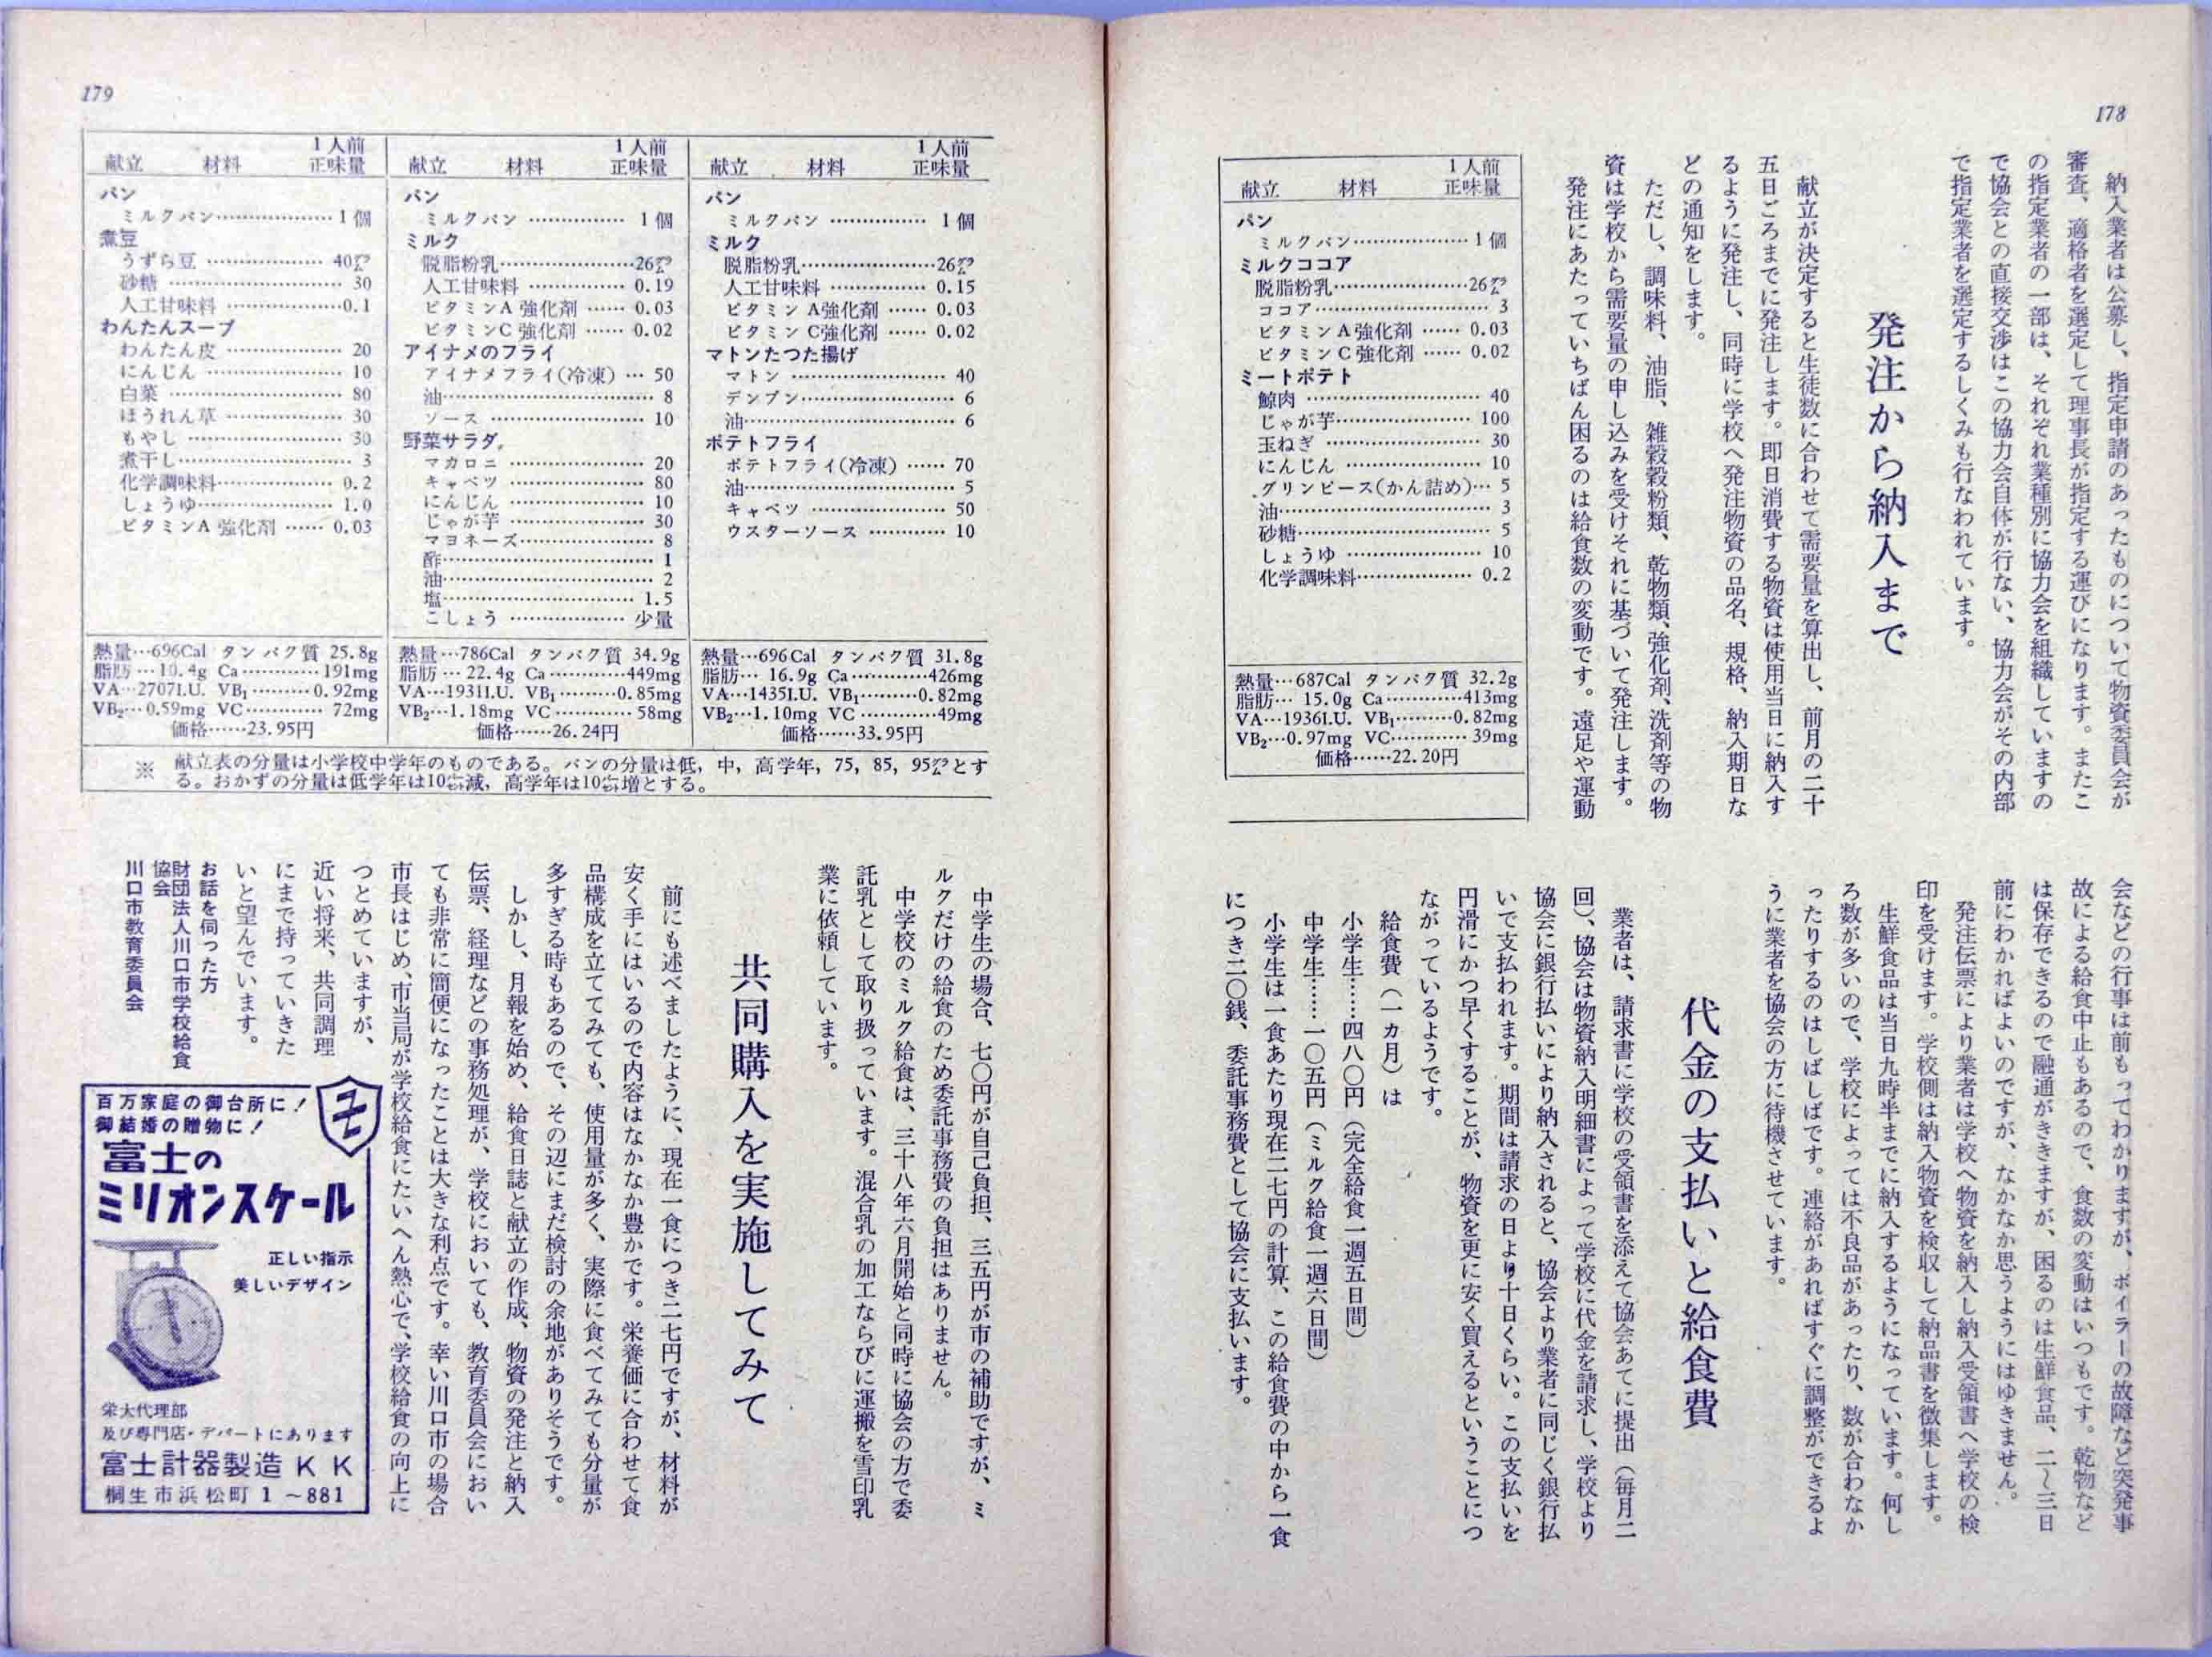 178
納入業者は公募し、指定申請のあったものについて物資委員会が
審査、適格者を選定して理事長が指定する運びになります。またこ
の指定業者の一部は、それぞれ業種別に協力会を組織していますの
で協会との直接交渉はこの協力会自体が行ない、協力会がその内部
で指定業者を選定するしくみも行なわれています。
発注から納入まで
献立が決定すると生徒数に合わせて需要量を算出し、前月の二十
五日ごろまでに発注します。即日消費する物資は使用当日に納入す
るように発注し、同時に学校へ発注物資の品名、規格、納入期日な
どの通知をします。
ただし、調味料、油脂、雑穀穀粉類、乾物類、強化剤、洗剤等の物
資は学校から需要量の申し込みを受けそれに基づいて発注します。
発注にあたっていちばん困るのは給食数の変動です。遠足や運動
献立 材料 1人前正味量
パン
ミルクパン………………1個
ミルクココア
脱脂粉乳………………26グラム
ココア………………3
ビタミンA強化剤……0.03
ビタミンC強化剤……0.02
ミートポテト
鯨肉………………40
じゃが芋………………100
玉ねぎ………………30
にんじん………………10
グリンピース(かん詰め)…5
油………………3
砂糖………………5
しょうゆ………………10
化学調味料………………0.2
熱量…687Cal タンパク質 32.2g
脂肪…15.0g Ca…………413mg
VA…1936I.U. VB₁………0.82mg
VB₂…0.97mg VC…………39mg
価格……22.20円
会などの行事は前もってわかりますが、ボイラーの故障など突発事
故による給食中止もあるので、食数の変動はいつもです。乾物など
は保存できるので融通がききますが、困るのは生鮮食品、二〜三日
前にわかればよいのですが、なかなか思うようにはゆきません。
発注伝票により業者は学校へ物資を納入し納入受領書へ学校の検
印を受けます。学校側は納入物資を検収して納品書を徴集します。
生鮮食品は当日九時半までに納入するようになっています。何し
ろ数が多いので、学校によっては不良品があったり、数が合わなか
ったりするのはしばしばです。連絡があればすぐに調整ができるよ
うに業者を協会の方に待機させています。
代金の支払いと給食費
業者は、請求書に学校の受領書を添えて協会あてに提出（毎月二
回）、協会は物資納入明細書によって学校に代金を請求し、学校より
協会に銀行払いにより納入されると、協会より業者に同じく銀行払
いで支払われます。期間は請求の日より十日くらい。この支払いを
円滑にかつ早くすることが、物資を更に安く買えるということにつ
ながっているようです。
給食費（一ヵ月）は
小学生……四八〇円（完全給食一週五日間）
中学生……一〇五円（ミルク給食一週六日間）
小学生は一食あたり現在二七円の計算、この給食費の中から一食
につき二〇銭、委託事務費として協会に支払います。
179
献立 材料 1人前正味量
パン
ミルクパン………………1個
ミルク
脱脂粉乳………………26グラム
人工甘味料………………0.15
ビタミンA強化剤……0.03
ビタミンC強化剤……0.02
マトンたつた揚げ
マトン………………40
デンプン………………6
油………………6
ポテトフライ
ポテトフライ(冷凍)……70
油………………5
キャベツ………………50
ウスターソース…………10
熱量…696Cal タンパク質 31.8g
脂肪…16.9g Ca…………426mg
VA…1435I.U. VB₁………0.82mg
VB₂…1.10mg VC…………49mg
価格……33.95円
献立 材料 1人前正味量
パン
ミルクパン………………1個
ミルク
脱脂粉乳………………26グラム
人工甘味料………………0.19
ビタミンA強化剤……0.03
ビタミンC強化剤……0.02
アイナメのフライ
アイナメフライ(冷凍)…50
油………………8
ソース………………10
野菜サラダ
マカロニ………………20
キャベツ………………80
にんじん………………10
じゃが芋………………30
マヨネーズ………………8
酢………………1
油………………2
塩………………1.5
こしょう………………少量
熱量…786Cal タンパク質 34.9g
脂肪…22.4g Ca…………449mg
VA…1931I.U. VB₁………0.85mg
VB₂…1.18mg VC…………58mg
価格……26.24円
献立 材料 1人前正味量
パン
ミルクパン………………1個
煮豆
うずら豆………………40グラム
砂糖………………30
人工甘味料………………0.1
わんたんスープ
わんたん皮………………20
にんじん………………10
白菜………………80
ほうれん草………………30
もやし………………30
煮干し………………3
化学調味料………………0.2
しょうゆ………………1.0
ビタミンA強化剤……0.03
熱量…696Cal タンパク質 25.8g
脂肪…10.4g Ca…………191mg
VA…2707I.U. VB₁………0.92mg
VB₂…0.59mg VC…………72mg
価格……23.95円
※ 献立表の分量は小学校中学年のものである。パンの分量は低，中，高学年，75，85，95グラムとす
る。おかずの分量は低学年は10㌫減，高学年は10㌫増とする。
中学生の場合、七〇円が自己負担、三五円が市の補助ですが、ミ
ルクだけの給食のため委託事務費の負担はありません。
中学校のミルク給食は、三十八年六月開始と同時に協会の方で委
託乳として取り扱っています。混合乳の加工ならびに運搬を雪印乳
業に依頼しています。
共同購入を実施してみて
前にも述べましたように、現在一食につき二七円ですが、材料が
安く手にはいるので内容はなかなか豊かです。栄養価に合わせて食
品構成を立ててみても、使用量が多く、実際に食べてみても分量が
多すぎる時もあるので、その辺にまだ検討の余地がありそうです。
しかし、月報を始め、給食日誌と献立の作成、物資の発注と納入
伝票、経理などの事務処理が、学校においても、教育委員会におい
ても非常に簡便になったことは大きな利点です。幸い川口市の場合
市長はじめ、市当局が学校給食にたいへん熱心で、学校給食の向上に
つとめていますが、
近い将来、共同調理
にまで持っていきた
いと望んでいます。
お話を伺った方
財団法人川口市学校給食
協会
川口市教育委員会
百万家庭の御台所に！
御結婚の贈物に！
富士の
ミリオンスケール
正しい指示
美しいデザイン
栄太代理部
及び専門店・デパートにあります
富士計器製造KK
桐生市浜松町1〜881